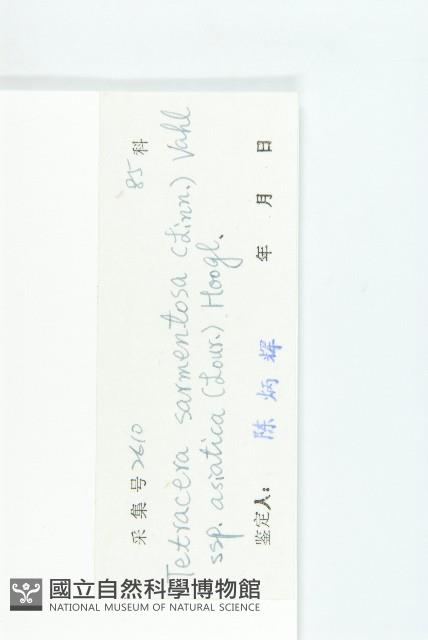 采集号 2610 85 科
Tetracera sarmentosa (Linn.) Vahl
ssp. asiatica (Lour.) Hoogl.
鉴定人: 陈炳辉 年 月 日
國立自然科學博物館
NATIONAL MUSEUM OF NATURAL SCIENCE